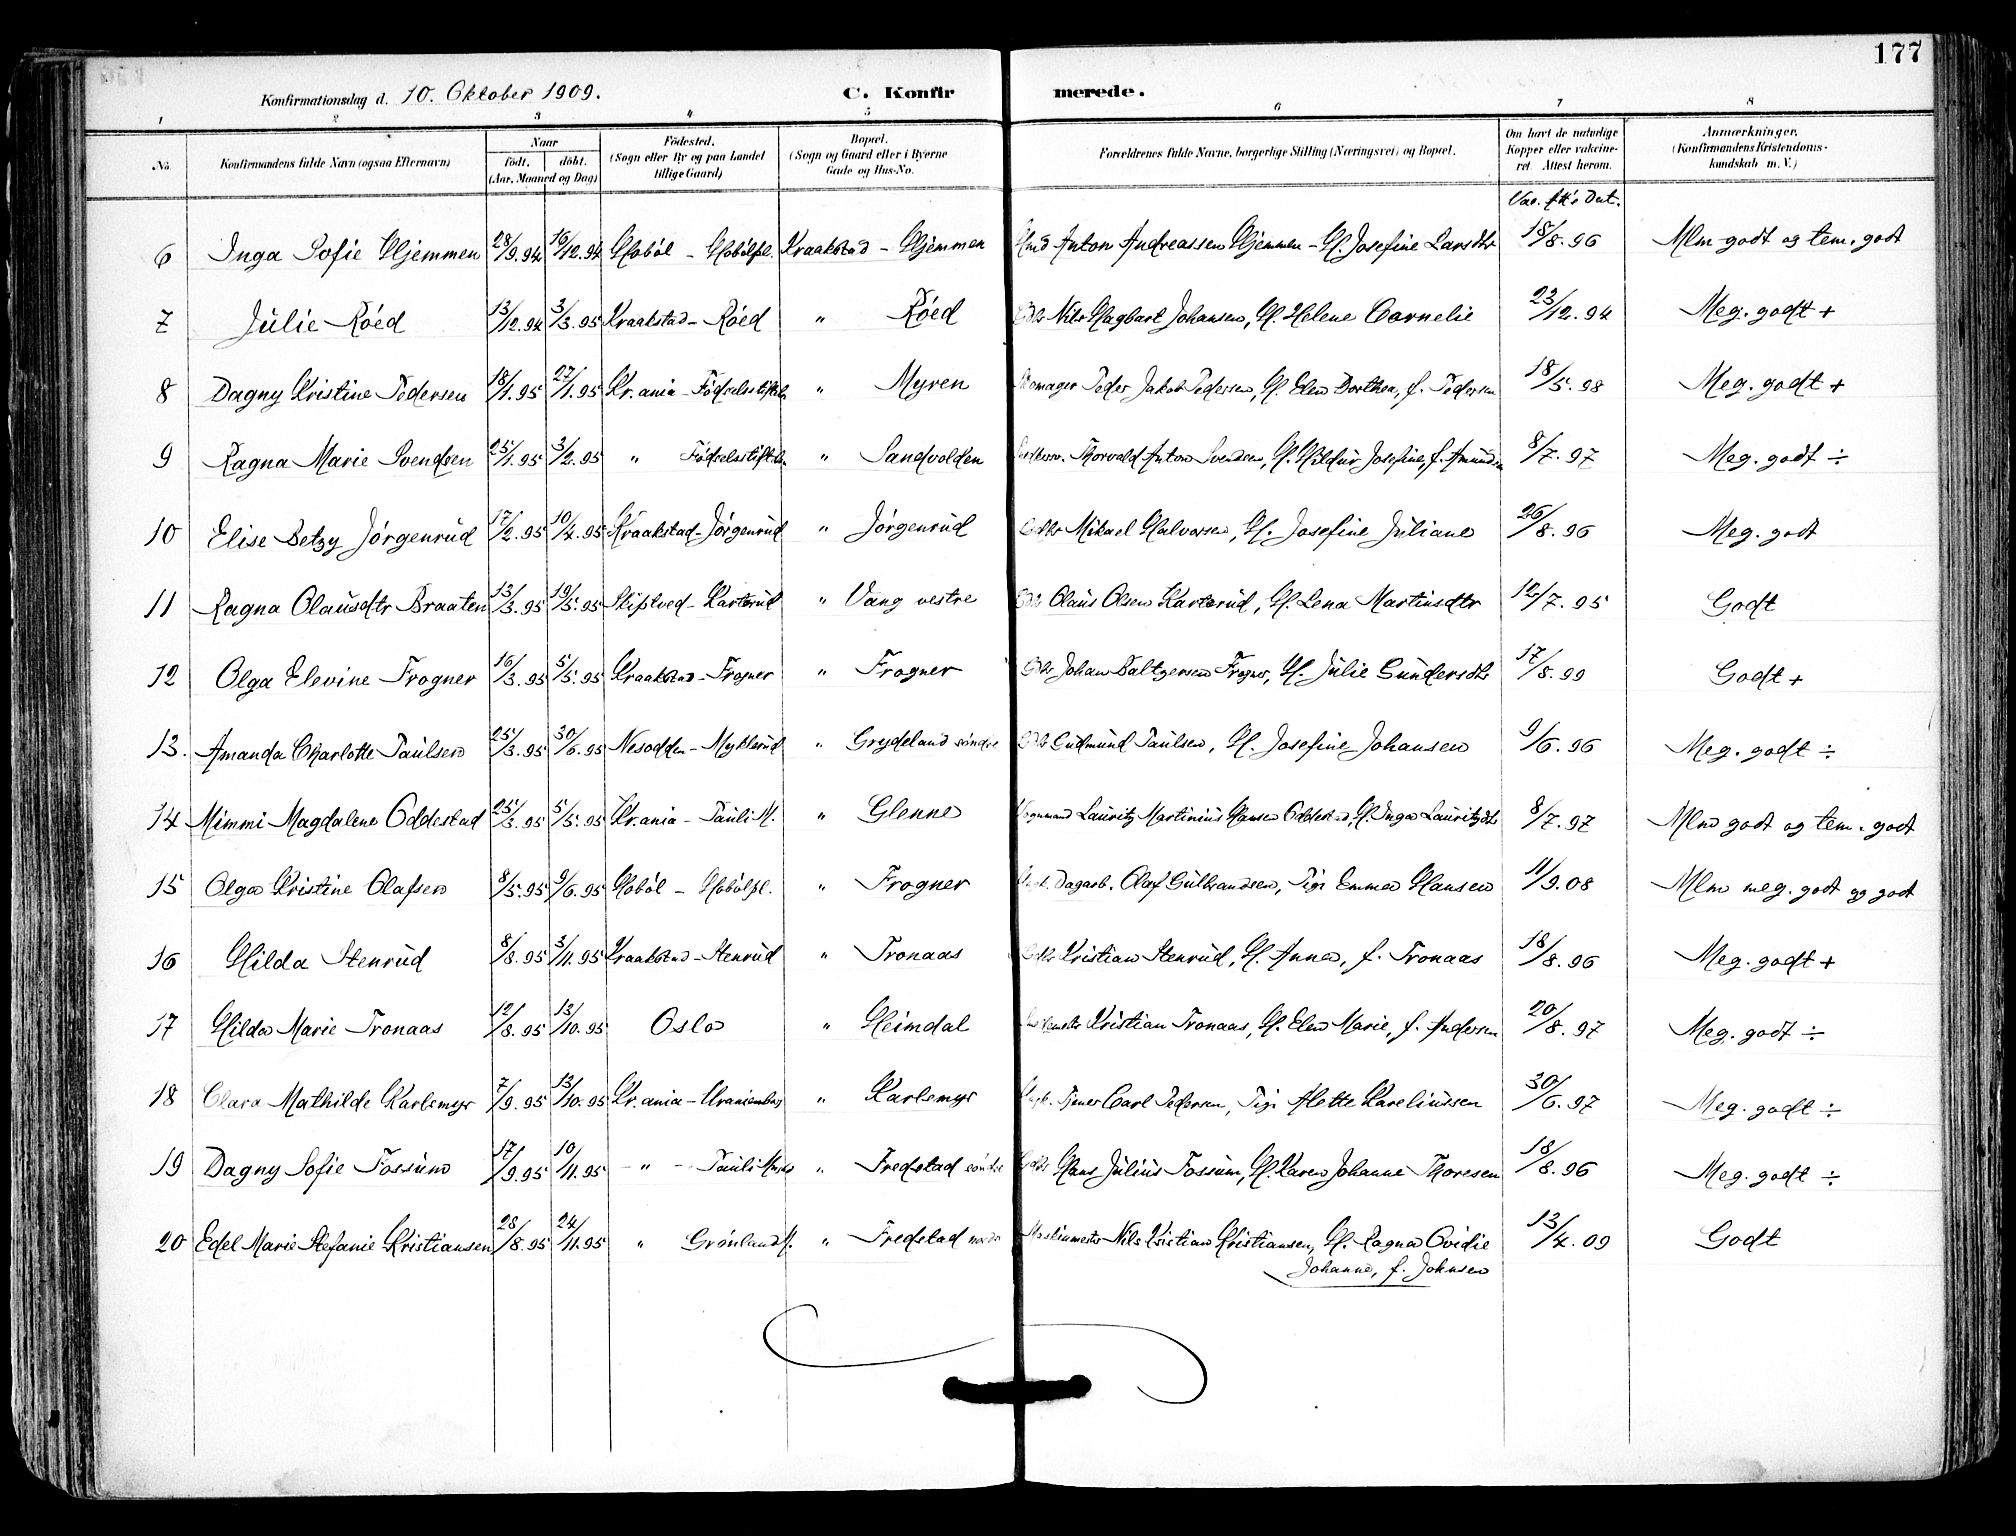 177
Konfirmationsdag d. 10. Oktober 1909. C. Konfirmerede.
1 2 3 4 5 6 7 8
No. Konfirmandens fulde Navn (ogsaa Efternavn) Naar födt. döbt. (Aar, Maaned og Dag) Födested. (Sogn eller By og paa Landet tillige Gaard) Bopæl. (Sogn og Gaard eller i Byerne Gade og Hus-No. Forældrenes fulde Navne, borgerlige Stilling (Næringsvei) og Bopæl. Om havt de naturlige Kopper eller vakcineret. Attest herom. Anmærkninger. (Konfirmandens Kristendomskundskab m. V.)
Vac. att's Dat.
6 Inga Sofie Hjemmen 28/9.94 16/12.94 Hobøl - Hobølpl. Kraakstad - Hjemmen Anton Andreassen Hjemmen - H. Josefine Larsdtr 18/8.96 Mlm godt og tem. godt
7 Julie Røed 13/12.94 3/3.95 Kraakstad - Røed " Røed Nils Hagbart Johansen, H. Helene Cornelie 23/12.94 Meg. godt +
8 Dagny Kristine Pedersen 18/1.95 27/1.95 Kr.ania - Fødselsstiftels " Myren Skomager Peder Jakob Pedersen, H. Elen Dorthea, f. Pedersen 18/5.98 Meg. godt +
9 Ragna Marie Svendsen 25/1.95 3/2.95 " Fødselsstift. " Sandvolden Thorvald Anton Svendsen, H. Hildur Josefine, f. Amundsen 8/7.97 Meg. godt ÷
10 Elise Betzy Jørgenrud 17/2.95 10/4.95 Kraakstad - Jørgenrud " Jørgenrud Mikael Halvorsen, H. Josefine Juliane 26/8.96 Meg. godt
11 Ragna Olausdtr Braaten 13/3.95 19/5.95 Skiptved - Karterud " Vang vestre Olaus Olsen Karterud, H. Lena Martinsdtr 12/7.95 Godt
12 Olga Elevine Frogner 16/3.95 5/5.95 Kraakstad - Frogner " Frogner Johan Baltzersen Frogner, H. Julie Gundersdtr 17/8.99 Godt +
13. Amanda Charlotte Paulsen 25/3.95 30/6.95 Nesodden - Myklerud " Grydeland søndre Gudmund Paulsen, H. Josefine Johansen 9/6.96 Meg. godt ÷
14 Mimmi Magdalene Oddestad 25/3.95 5/5.95 Kr.ania - Pauli M. " Glenne Vognmand Lauritz Martinius Hansen Oddestad, H. Inga Lauritzdtr 8/7.97 Mlm godt og tem. godt
15 Olga Kristine Olafsen 8/5.95 9/6.95 Hobøl - Hobølpl. " Frogner Ungk. Dagarb. Olaf Gulbrandsen, Pige Emma Hansen 11/9.08 Mlm meg. godt og godt
16 Hilda Stenrud 8/8.95 3/11.95 Kraakstad - Stenrud " Tronaas Kristian Stenrud, H. Anna, f. Tronaas 18/8.96 Meg. godt +
17 Hilda Marie Tronaas 12/8.95 13/10.95 Oslo " Heimdal Kristian Tronaas, H. Elen Marie, f. Andersen 20/8.97 Meg. godt ÷
18 Clara Mathilde Karlsmyr 7/9.95 13/10.95 Kr.ania - Uranienborg " Karlsmyr Ungk. Tjener Carl Pedersen, Pige Alette Kareliussen 30/6.97 Meg. godt ÷
19 Dagny Sofie Fossum 17/9.95 10/11.95 - " - Pauli " Fredstad søndre Hans Julius Fossum, H. Karen Johanne Thoresen 18/8.96 Meg. godt ÷
20 Edel Marie Stefanie Kristiansen 28/8.95 24/11.95 " Grønland M. " Fredstad nordre Maskinmester Nils Kristian Kristiansen, H. Ragna Ovidie 13/4.09 Godt
Johanne, f. Johnsen